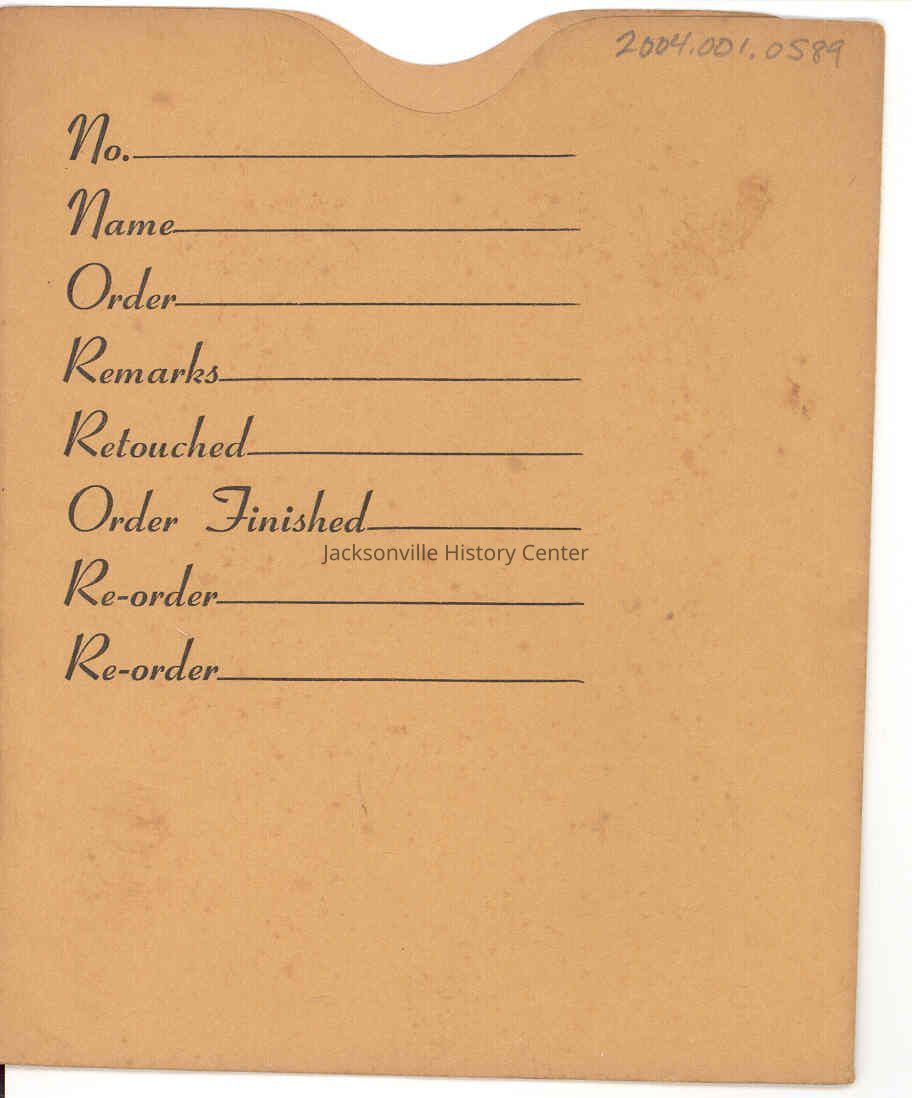 2004.001.0589
No.
Name
Order
Remarks
Retouched
Order Finished
Jacksonville History Center
Re-order
Re-order